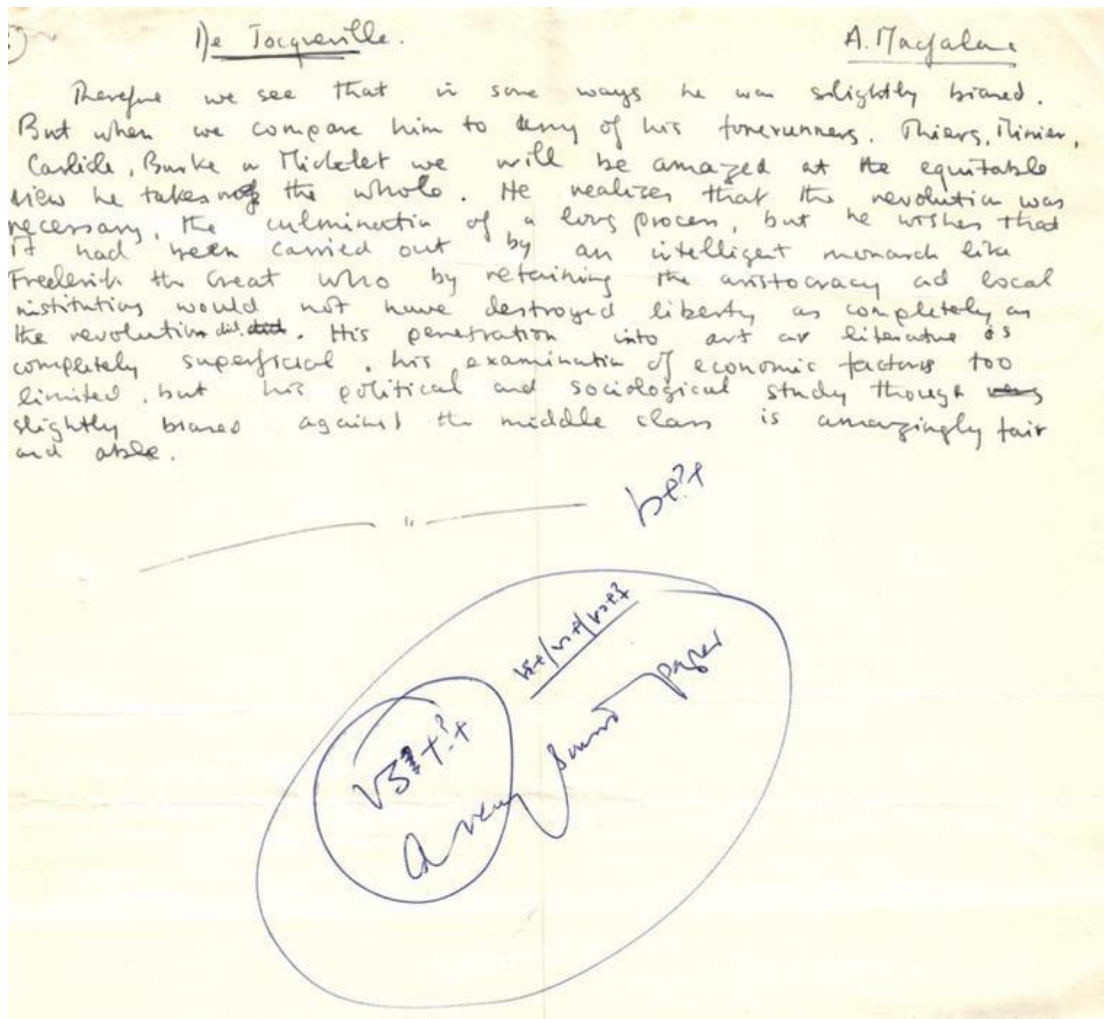 De Tocqueville. A. Macfarlane
Therefore we see that in some ways he was slightly biased.
But when we compare him to any of his forerunners. Thiers, Minier,
Carlile, Burke or Michelet we will be amazed at the equitable
view he takes of the whole. He realizes that the revolution was
necessary, the culmination of a long process, but he wishes that
it had been carried out by an intelligent monarch like
Frederik the Great who by retaining the aristocracy and local
institutions would not have destroyed liberty as completely as
the revolution did. His penetration into art or literature is
completely superficial, his examination of economic factors too
limited, but his political and sociological study though
slightly biased against the middle class is amazingly fair
and able.
b+?+
A very sound paper